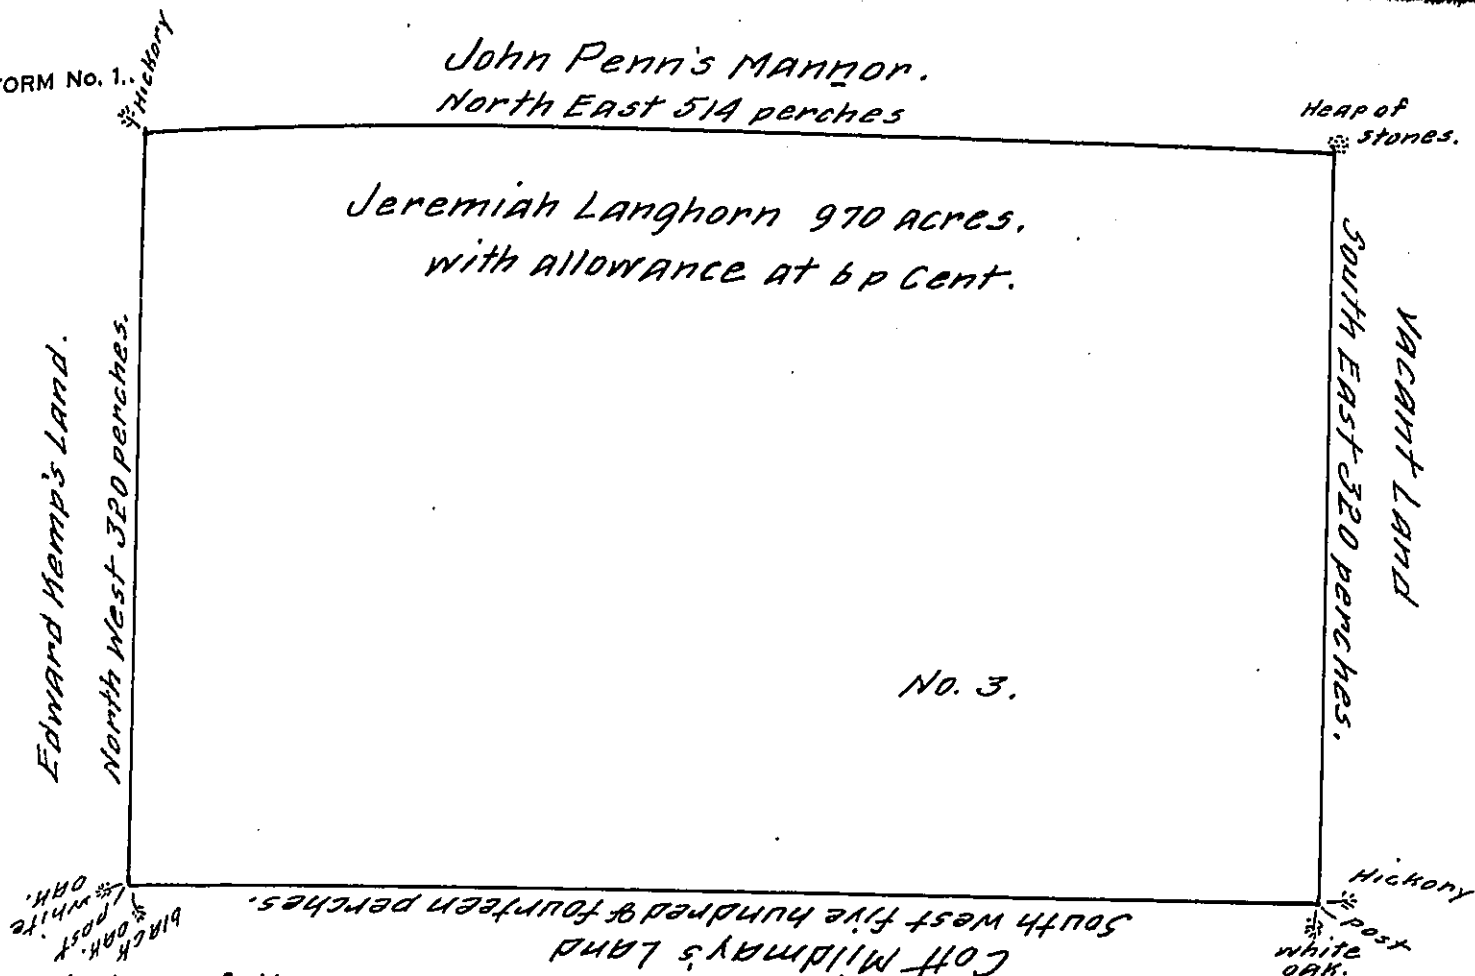 FORM No. 1.
Hickory
John Penn's Mannor.
North East 514 perches
Heap of
stones.
Jeremiah Langhorn 970 acres.
with allowance at 6 p Cent.
Edward Kemp's Land.
North West 320 perches.
South East 320 perches.
Vacant Land
No. 3.
white
oak.
post
black
oak.
South west five hundred & fourteen perches.
Coff Mildmay's Land
Hickory
post
white
oak.